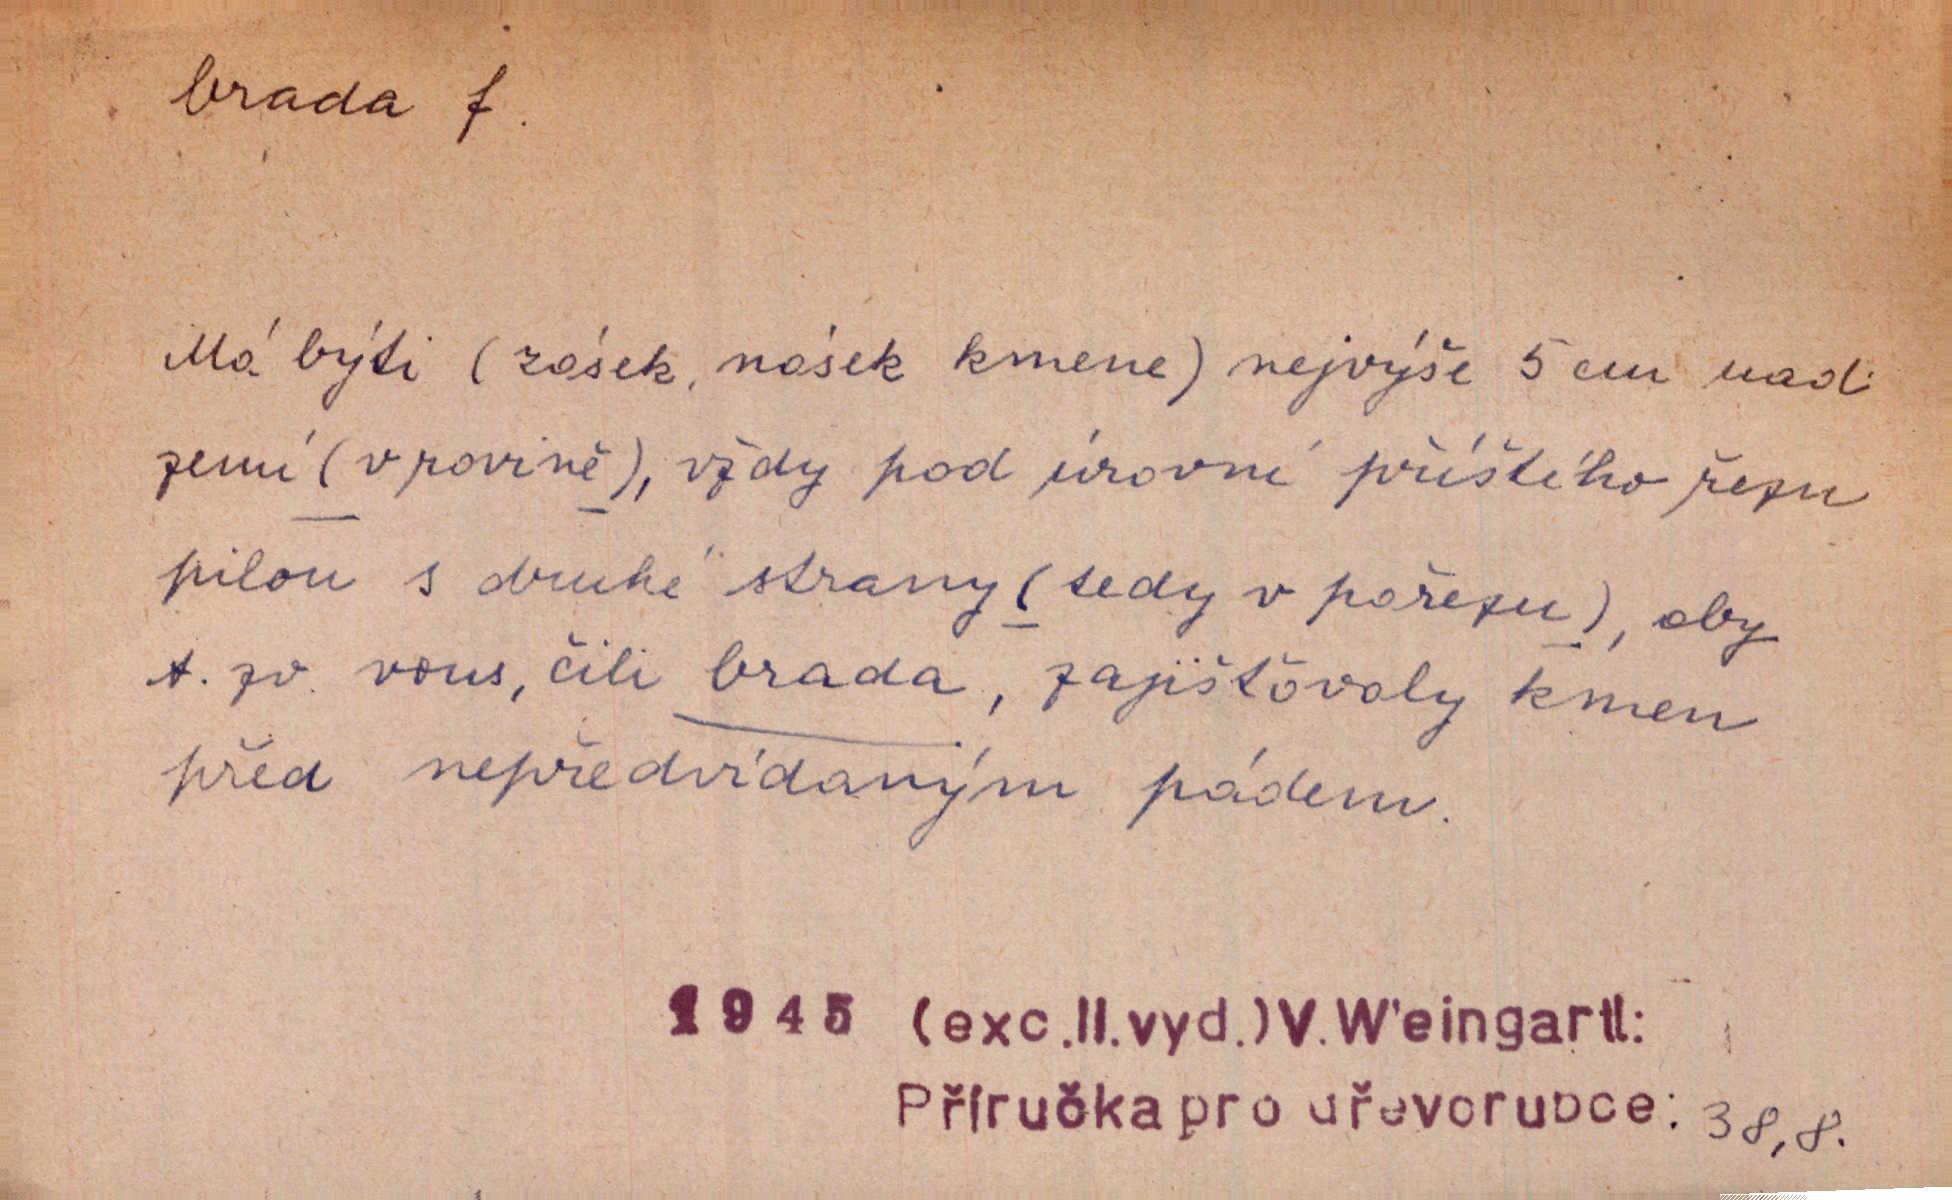 brada f.
Má býti (zásek, násek kmene) nejvýše 5 cm nad
zemí (v rovině), vždy pod úrovní příštího řezu
pilou s druhé strany (tedy v pořezu), aby
t. zv. vous, čili brada, zajišťovaly kmen
před nepředvídaným pádem.
1945 (exc.II.vyd.)V.Weingartl:
Příručka pro dřevorubce: 38,8.